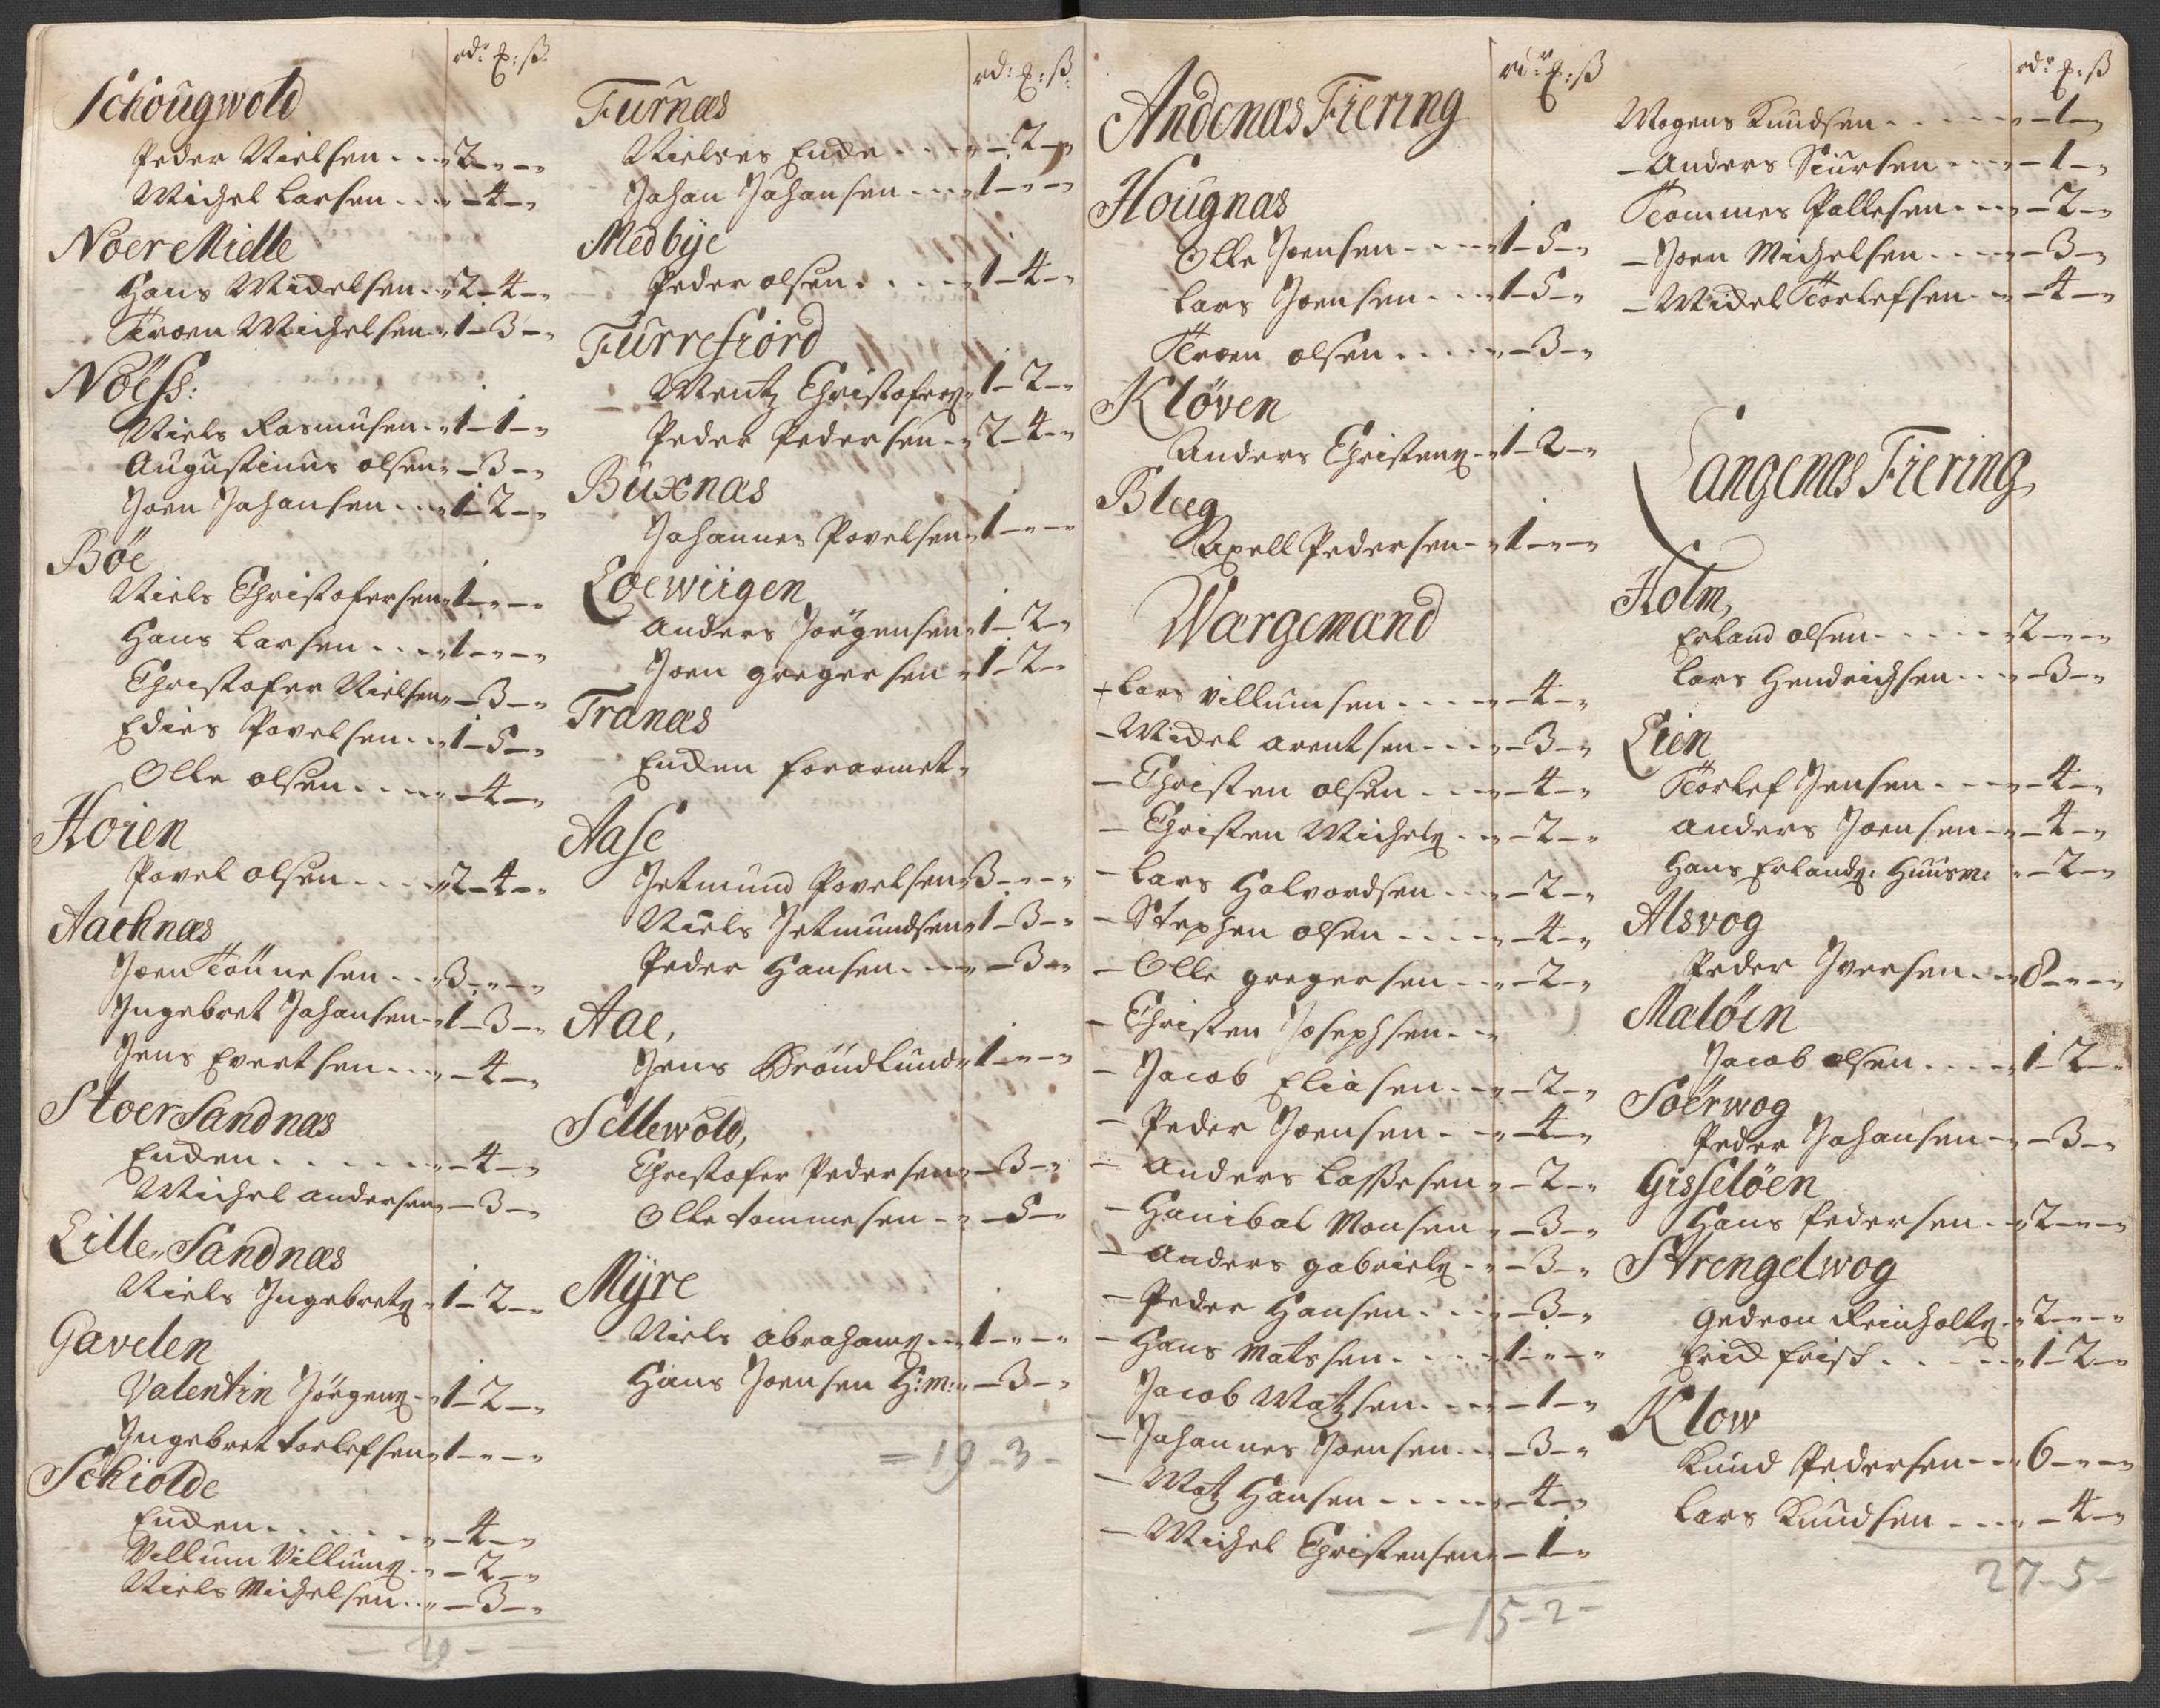 rdr ẞ: ß
Schougwold
Peder Nielsen - - - 2 - " - "
Michel Larsen - - - " - 4 - "
Noer Mielle
Hans Mickelsen - " 2 - 4 - "
Troen Michelsen " 1 - 3 - "
Nöess:
Niels Rasmusen - " 1 - 1 - "
Augustinus olsen " - 3 - "
Joen Johansen - - " 1 - 2 - "
Böe
Niels Christofersen " 1 - " - "
Hans Larsen - - - " 1 - " - "
Christofer Nielsen " - 3 - "
Edies Povelsen - - " 1 - 5 - "
Olle olsen - - - - " - 4 - "
Hoien
Povel olsen - - - - " 2 - 4 - "
Aacknæs
Joen Tönnesen - - " 3 - " - "
Ingebret Johansen - " 1 - 3 - "
Jens Evertsen - - - " - 4 - "
Stoer Sandnæs
Encken - - - - - - " - 4 - "
Michel andersen " - 3 - "
Lille Sandnæs
Niels Ingebretz - " 1 - 2 - "
Gavelen
Valentin Jörgens - " 1 - 2 - "
Ingebret torlefsen " 1 - " - "
Schiolde
Encken - - - - - - " - 4 - "
Villum Villums - " - 2 - "
Niels Michelsen - - " - 3 - "
rd: ẞ: ß
Furnæs
Nielses Encke - - - - " - 2 - "
Johan Johansen - - - " 1 - " - "
Medbye
Peder olsen - - - - " 1 - 4 - "
Furrefiord
Mentz Christofers " 1 - 2 - "
Peder Pedersen - " 2 - 4 - "
Buxnæs
Johannes Povelsen " 1 - " - "
Loewiigen
Anders Jörgensen " 1 - 2 - "
Joen gregersen " 1 - 2 - "
Tranæs
Encken forarmet "
Aase
Jetmund Povelsen " 3 - " - "
Niels Jetmundsen " 1 - 3 - "
Peder Hansen - - - " - 3 - "
Aae,
Jens Gröndlund " 1 - " - "
Sellewold,
Christofer Pedersen " - 3 - "
Olle tommesen - " - 5 - "
Myre
Niels abrahams - - " 1 - " - "
Hans Joensen H:m: " - 3 - "
= 19 - 3 -
rdr ẞ: ß
Andenæs Fiering
Hougnæs
Olle Joensen - - - - " 1 - 5 - "
Lars Joensen - - - " 1 - 5 - "
Troen olsen - - - - - " - 3 - "
Klöven
Anders Christens - " 1 - 2 - "
Bleeg
Axell Pedersen - " 1 - " - "
Wargemænd
+ Lars Villumsen - - - - " - 4 - "
- Mickel arentsen - - - " - 3 - "
- Christen olsen - - - " - 4 - "
- Christen Michels - - " - 2 - "
- Lars Halvordsen - - " - 2 - "
- Stephen olsen - - - - " - 4 - "
- Olle gregersen - - " - 2 - "
- Christen Josephsen - - "
- Jacob Eliasen - - - " - 2 - "
- Peder Joensen - - " - 4 - "
- Anders Lassesen " - 2 - "
- Hanibal Monsen " - 3 - "
- Anders gabriels - " - 3 - "
- Peder Hansen - - - " - 3 - "
- Hans Matssen - - - - " 1 - " - "
Jacob Matzsen - - - " - 1 - "
- Johannes Joensen - - " - 3 - "
- Matz Hansen - - - - - " - 4 - "
- Michel Christensen " - 1 - "
- 15 - 2 -
rdr ẞ: ß
Mogens Knudsen - - - - - " - 1 - "
- Anders Siursen - - - " - 1 - "
Tommes Pallesen - - - " - 2 - "
- Joen Michelsen - - - - " - 3 - "
- Mickel Torlefsen - " - 4 - "
Langenæs Fiering
Holm,
Erland olsen - - - - - " 2 - " - "
Lars Hendrichsen - - - " - 3 - "
Lien
Torlef Jensen - - - " - 4 - "
Anders Joensen - " - 4 - "
Hans Erlands: Huusm: " - 2 - "
Alsvog
Peder Iversen - - " 8 - " - "
Maløen
Jacob olsen - - - - " 1 - 2 - "
Soerwog
Peder Johansen - " - 3 - "
Gisseløen
Hans Pedersen - - " 2 - " - "
Strengelwog
Gedeon Reinholtz - " 2 - " - "
Erick Friis - - - - - " 1 - 2 - "
Klow
Knud Pedersen - - " 6 - " - "
Lars Knudsen - - - " - 4 - "
27 - 5 -